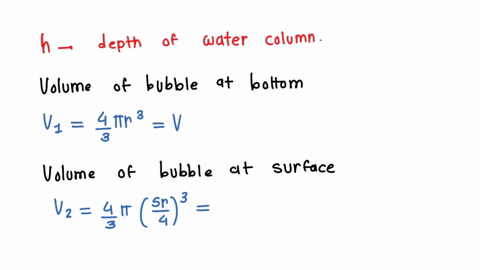 h → depth of water column.
Volume of bubble at bottom
V₁ = 4/3 πr³ = V
Volume of bubble at surface
V₂ = 4/3 π (5r/4)³ =